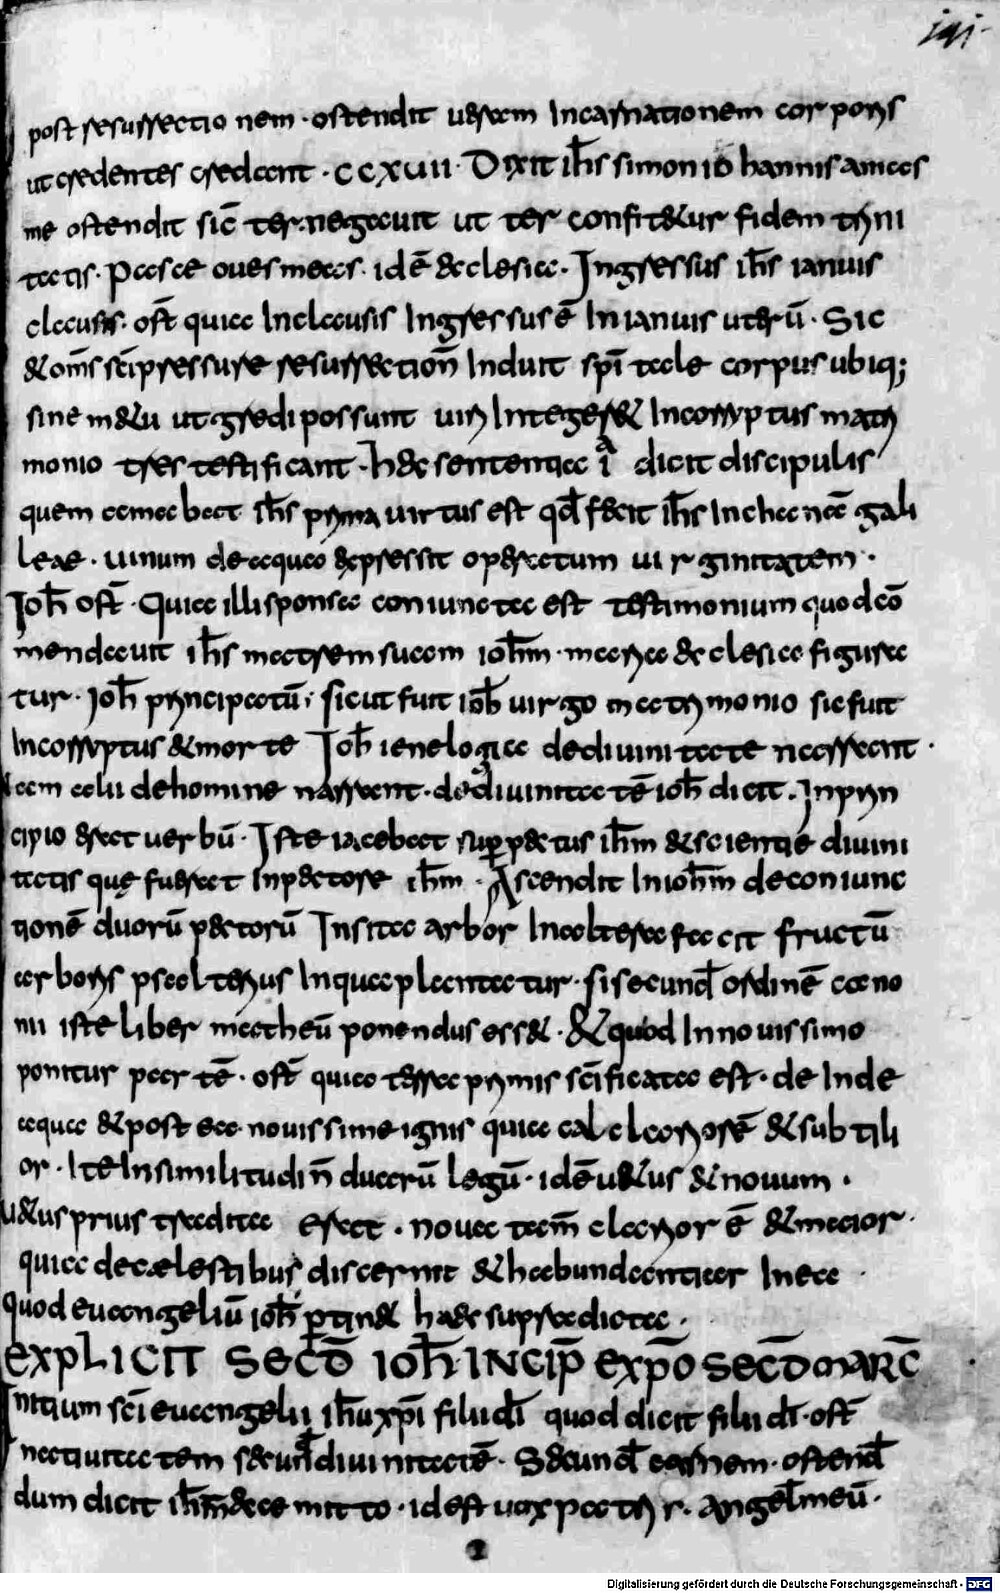 iqi·
post resurrectionem · ostendit ueram Incarnationem corporis
ut credentes credant · ccxuii · Dixit ih̅s simon iohannis amas
me ostendit sic̅ ter negauit ut ter confitetur fidem trini
tatis · Pasce oues meas · id e̅ æclesia · Ingressus ih̅s ianuis
clausis · ost̅ quia Inclausis Ingressus e̅ In ianuis uteru̅ · Sic
& om̅s sc̅i pressure resurrection̅ Induit sp̅i tale corpus ubiq;
sine metu ut gredi possunt uiri Integer & Incorruptus matri
monio tres testificant · hæc sententia dicit discipulis
quem amabat ih̅s prima uirtus est qd̅ fecit ih̅s In channa̅ gali
leae · uinum de aqua expressit opératum uirginitatem ·
Ioh̅ ost̅ · Quia illi sponsa coniuncta est testimonium quod co̅
mendauit ih̅s matrem suam ioh̅m · maria æclesia figura
tur · Ioh̅ principatu̅; sicut fuit ioh̅ uirgo matrimonio sic fuit
Incorruptus & morte Ioh̅ ienelogia de diuinitate narrant ·
tam alii de homine narrant · de diuinitate ioh̅ dicit · In prin
cipio erat uerbu̅ · Iste iacebat sup̅ pectus ih̅m & scientie diuini
tatis quę fuerat In pectore ih̅m · Ascendit In ioh̅m de coniunc
tione̅ duoru̅ pectoru̅ Insita arbor In altera facit fructu̅
arboris psalterius In qua plantatur · si secund̅ ordine̅ cano
nii iste liber matheu̅ ponendus esset · & quod In nouissimo
ponitur par te̅ · ost̅ quia terra primis sc̅ificata est · de Inde
aqua & post ea nouissime ignis quia cal clarior e̅ & subtili
or · Ite In similitudin̅ duaru̅ legu̅ · id e̅ uetus & nouum ·
uetus prius tradita erat · noua tam̅ clarior e̅ & maior ·
quia de cælestibus discernit & habundantia In ea ·
quod euangeliu̅ ioh̅ p̅tinet hæc supradicta ·
EXPLICIT SECD̅ IOH̅ INCIP̅ EXPO̅ SECD̅ MARC̅
Initium sc̅i euangelii ih̅u xp̅i filii di̅ quod dicit filii di̅ · ost̅
natiuitatem secund̅ diuinitate̅ · Secund̅ carnem · ostend̅
dum dicit ih̅m ecce mitto · id est uox patris · angel̅ meu̅ ·
Digitalisierung gefördert durch die Deutsche Forschungsgemeinschaft - DFG